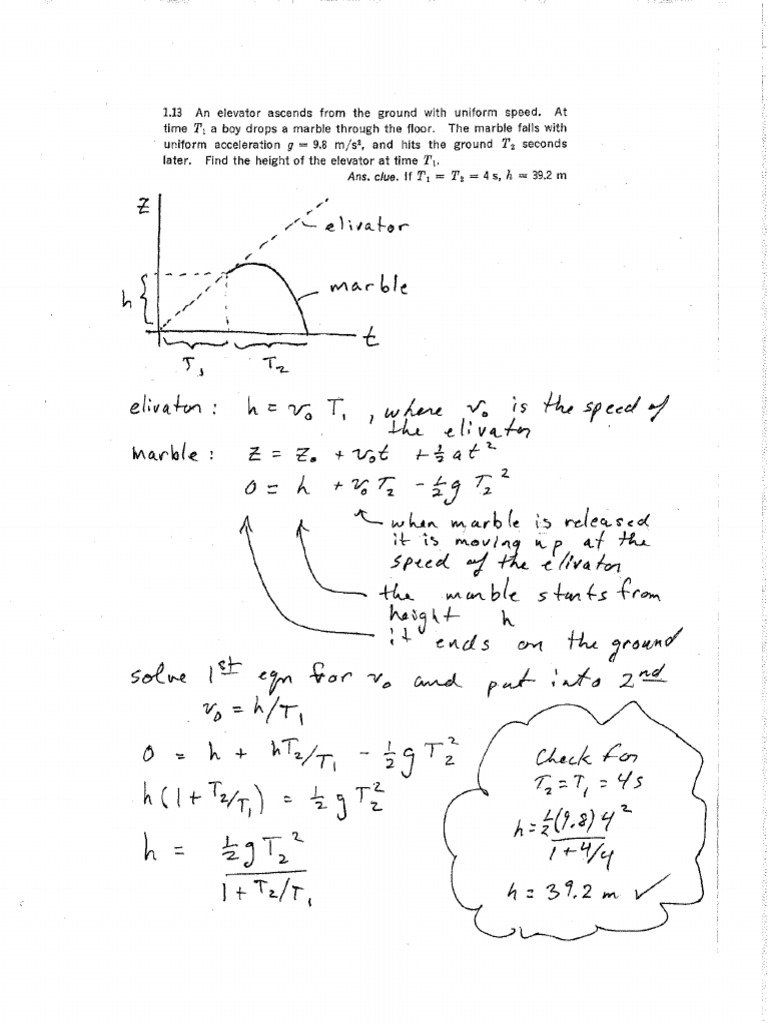 1.13 An elevator ascends from the ground with uniform speed. At
time T₁ a boy drops a marble through the floor. The marble falls with
uniform acceleration g = 9.8 m/s², and hits the ground T₂ seconds
later. Find the height of the elevator at time T₁.
Ans. clue. If T₁ = T₂ = 4 s, h = 39.2 m
z
elivator
marble
h
t
T₁ T₂
elivator : h = v₀ T₁ , where v₀ is the speed of
the elivator
marble : z = z₀ + v₀t + ½ a t²
0 = h + v₀ T₂ - ½ g T₂²
when marble is released
it is moving up at the
speed of the elivator
the marble starts from
height h
it ends on the ground
solve 1st eqn for v₀ and put into 2nd
v₀ = h/T₁
0 = h + hT₂/T₁ - ½ g T₂²
h(1 + T₂/T₁) = ½ g T₂²
h = ½ g T₂² / (1 + T₂/T₁)
Check for
T₂ = T₁ = 4s
h = ½(9.8) 4² / (1 + 4/4)
h = 39.2 m ✓